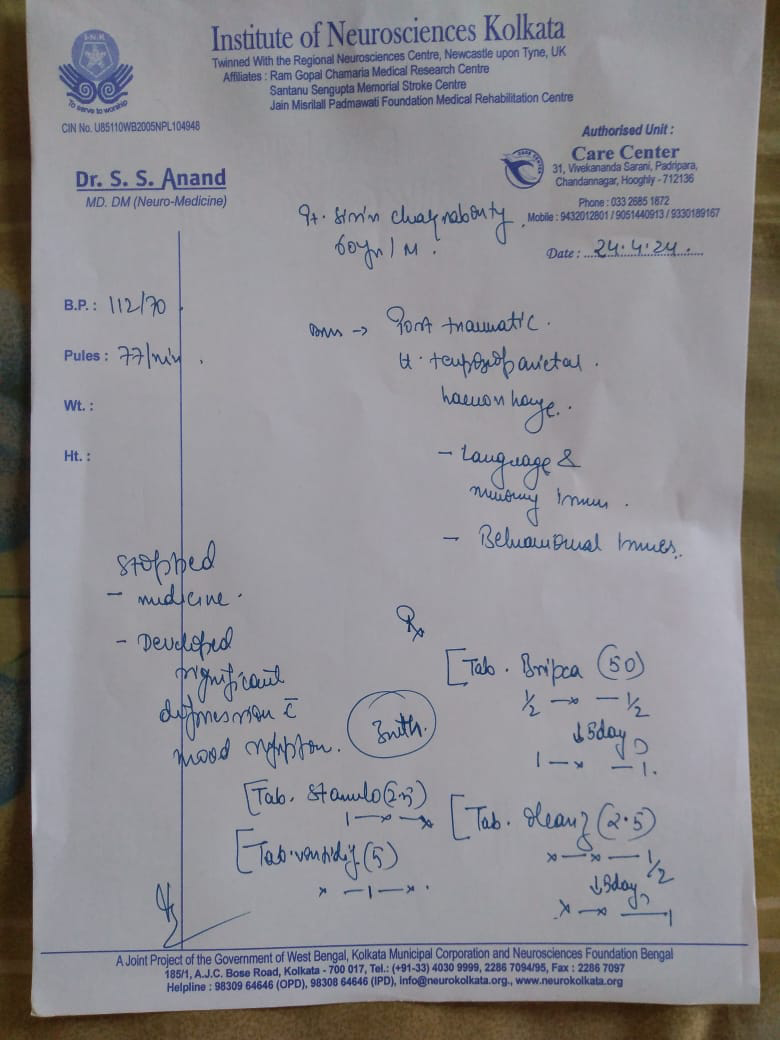 I-N-K
To serve to worship
CIN No. U85110WB2005NPL104948
Institute of Neurosciences Kolkata
Twinned With the Regional Neurosciences Centre, Newcastle upon Tyne, UK
Affiliates : Ram Gopal Chamaria Medical Research Centre
Santanu Sengupta Memorial Stroke Centre
Jain Misrilall Padmawati Foundation Medical Rehabilitation Centre
Dr. S. S. Anand
MD. DM (Neuro-Medicine)
Authorised Unit :
Care Center
31, Vivekananda Sarani, Padripara,
Chandannagar, Hooghly - 712136
Phone : 033 2685 1872
Mobile : 9432012801 / 9051440913 / 9330189167
Date : 24.4.24
Pt. chakraborty
60yr / M.
B.P. : 112/70
Pules : 77/min
Wt. :
Ht. :
→ Post traumatic.
temporoparietal.
haemorrhage.
- Language &
memory issues.
- Behavioural issues.
stopped
- medicine.
- Developed
significant
depression c̄
mood symptom.
Rx
[Tab. (50)
½ —x —½
↓5days
1 —x —1.
3mth.
[Tab. (2.5)
1 —x —x
[Tab. (5)
x —1 —x.
[Tab. Oleanz (2.5)
x —x —½
↓5days
x —x —1
A Joint Project of the Government of West Bengal, Kolkata Municipal Corporation and Neurosciences Foundation Bengal
185/1, A.J.C. Bose Road, Kolkata - 700 017, Tel.: (+91-33) 4030 9999, 2286 7094/95, Fax : 2286 7097
Helpline : 98309 64646 (OPD), 98308 64646 (IPD), info@neurokolkata.org., www.neurokolkata.org